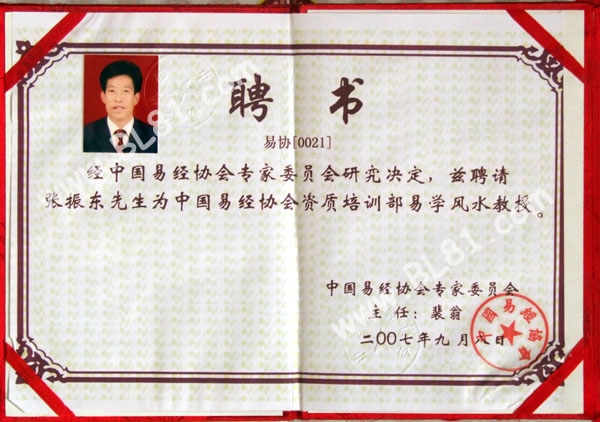 聘书
易协[0021]
经中国易经协会专家委员会研究决定，兹聘请
张振东先生为中国易经协会资质培训部易学风水教授。
中国易经协会专家委员会
主任：裴翁
二〇〇七年九月六日
中国易经协会
www.BL81.com
www.BL81.com